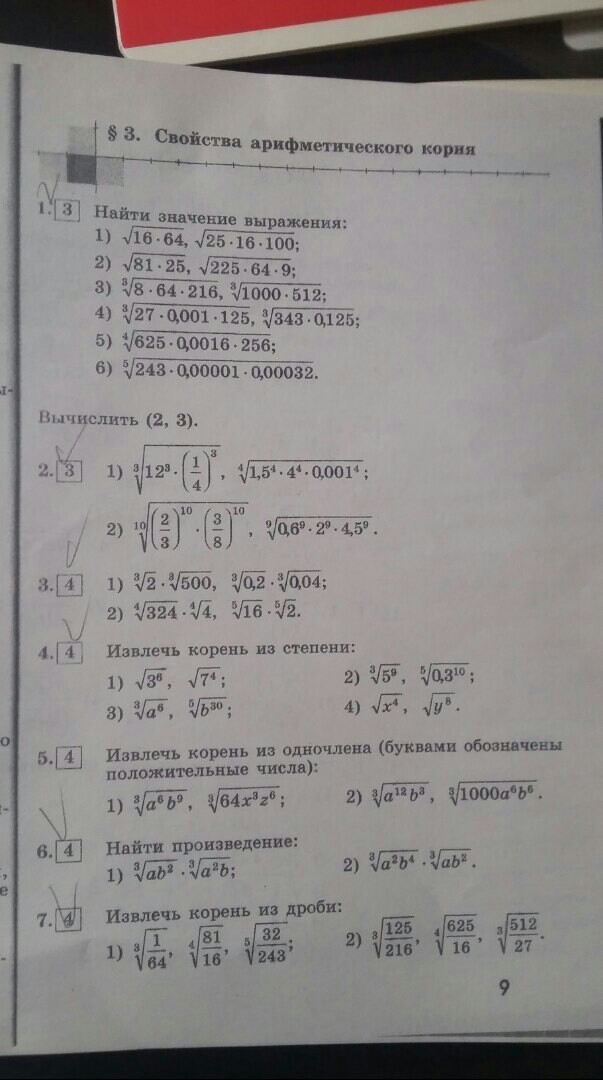 § 3. Свойства арифметического корня
1. 3 Найти значение выражения:
1) √(16·64), √(25·16·100);
2) √(81·25), √(225·64·9);
3) ∛(8·64·216), ∛(1000·512);
4) ∛(27·0,001·125), ∛(343·0,125);
5) ∜(625·0,0016·256);
6) ⁵√(243·0,00001·0,00032).
Вычислить (2, 3).
2. 3 1) ∛(12³·(1/4)³), ∜(1,5⁴·4⁴·0,001⁴);
2) ¹⁰√((2/3)¹⁰·(3/8)¹⁰), ⁹√(0,6⁹·2⁹·4,5⁹).
3. 4 1) ∛2·∛500, ∛0,2·∛0,04;
2) ∜324·∜4, ⁵√16·⁵√2.
4. 4 Извлечь корень из степени:
1) √3⁶, √7⁴; 2) ∛5⁹, ⁵√0,3¹⁰;
3) ∛a⁶, ⁵√b³⁰; 4) √x⁴, √y⁸.
5. 4 Извлечь корень из одночлена (буквами обозначены
положительные числа):
1) ∛(a⁶b⁹), ∛(64x³z⁶); 2) ∛(a¹²b³), ∛(1000a⁶b⁶).
6. 4 Найти произведение:
1) ∛(ab²)·∛(a²b); 2) ∛(a²b⁴)·∛(ab²).
7. 4 Извлечь корень из дроби:
1) ∛(1/64), ∜(81/16), ⁵√(32/243); 2) ∛(125/216), ∜(625/16), ∛(512/27).
9